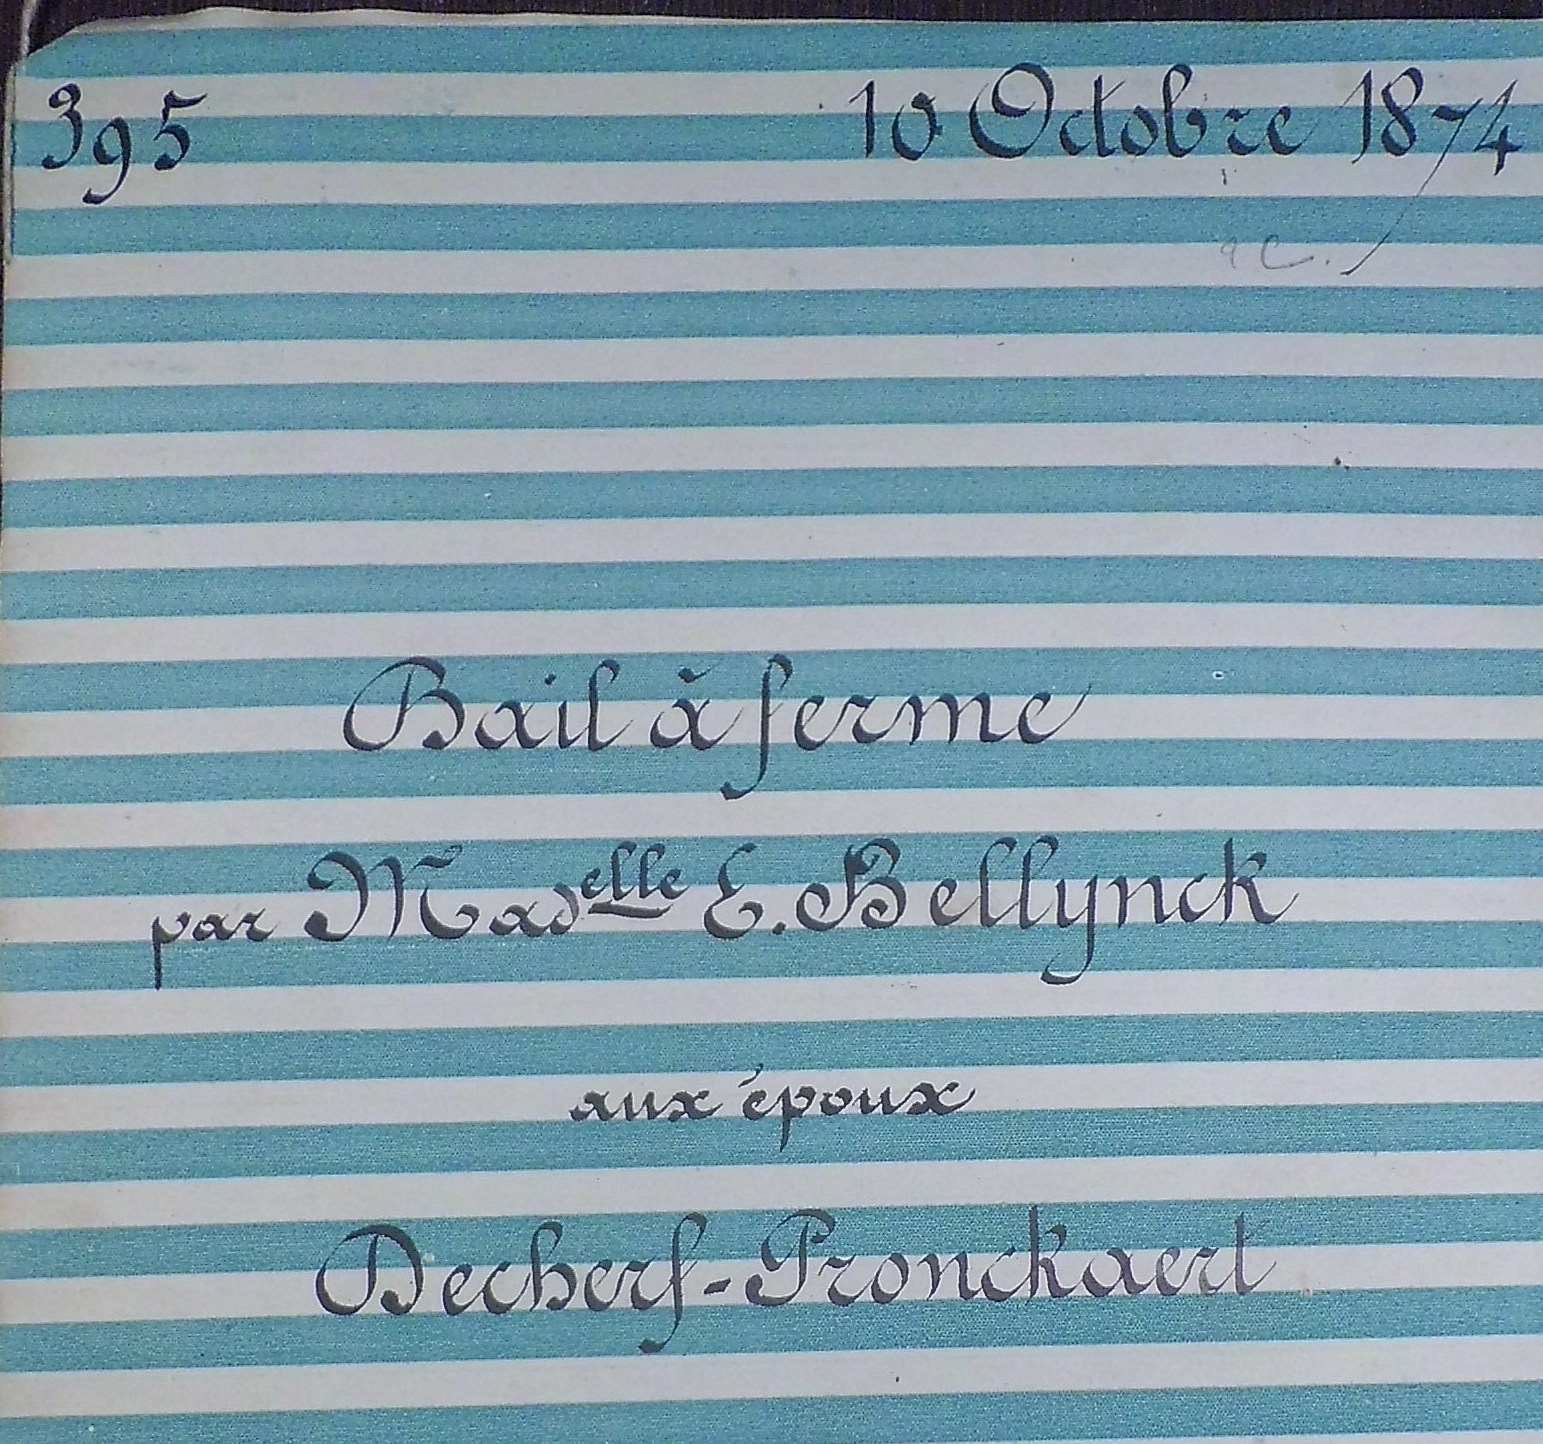 395 10 Octobre 1874
Bail à ferme
par Mad<sup>elle</sup> E. Bellynck
aux époux
Decherf-Pronckaert